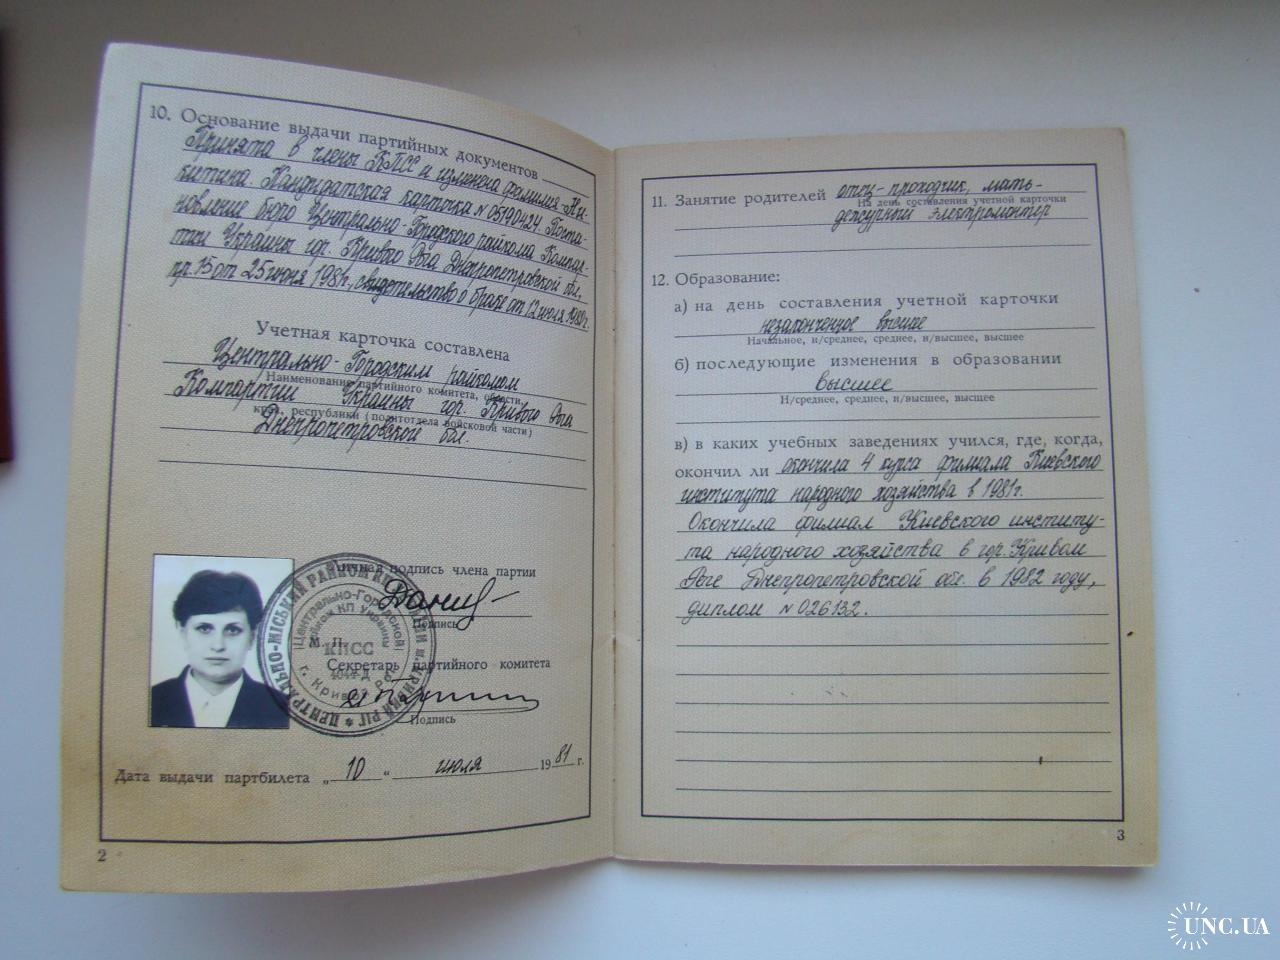 10. Основание выдачи партийных документов
Принята в члены КПСС и изменена фамилия-Ни-
китина. Кандидатская карточка №05190424. Поста-
новление бюро Центрально-Городского райкома Компар-
тии Украины гор. Кривого Рога Днепропетровской обл.,
пр. 15 от 25 июня 1981г., свидетельство о браке от 12 июля 1980г.
Учетная карточка составлена
Центрально-Городским райкомом
Наименование партийного комитета, области,
Компартии Украины гор. Кривого Рога
края, республики (политотдела войсковой части)
Днепропетровской обл.
Личная подпись члена партии
Подпись
М. П.
Секретарь партийного комитета
Подпись
ЦЕНТРАЛЬНО-МІСЬКИЙ РАЙКОМ
Центрально-Городской
райком КП Украины
КПСС
г. Кривой Рог
Дата выдачи партбилета „10“ июля 1981 г.
2
11. Занятие родителей отец-проходчик, мать-
На день составления учетной карточки
дежурный электромонтер
12. Образование:
а) на день составления учетной карточки
незаконченное высшее
Начальное, н/среднее, среднее, н/высшее, высшее
б) последующие изменения в образовании
высшее
Н/среднее, среднее, н/высшее, высшее
в) в каких учебных заведениях учился, где, когда,
окончил ли окончила 4 курса филиала Киевского
института народного хозяйства в 1981г.
Окончила филиал Киевского институ-
та народного хозяйства в гор. Кривом
Роге Днепропетровской обл. в 1982 году,
диплом №026132.
3
UNC.UA